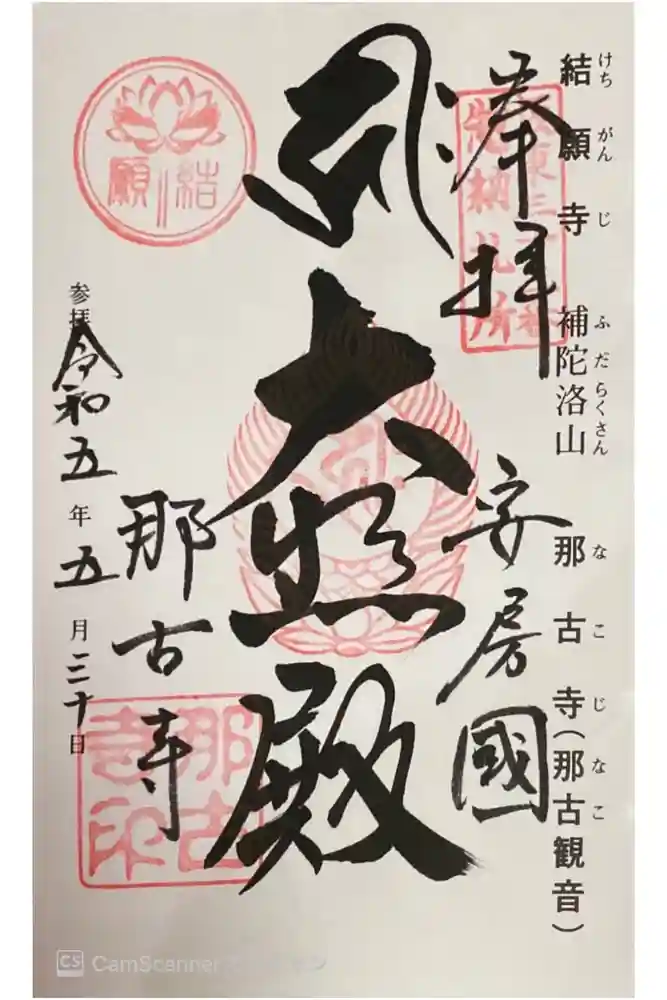 けちがんじ ふだらくさん なこじ なこ
結願寺 補陀洛山 那古寺(那古観音)
奉拝
安房國
坂東三十三番
惣納札所
大悲殿
結願
那古寺
那古
寺印
参拝 令和五年五月三十日
CS CamScanner